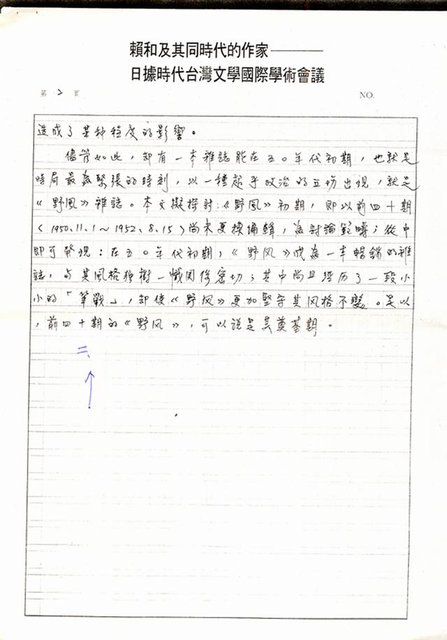 賴和及其同時代的作家———
日據時代台灣文學國際學術會議
第 3 頁 NO.
造成了某种程度的影響。
儘管如此,却有一本雜誌能在五○年代初期,也就是
時局最為緊張的時刻,以一種超乎政治的立場出現,就是
《野風》雜誌。本文擬探討《野風》初期,即以前四十期
(1950.11.1~1952.8.15)尚未更換編輯,為討論範疇;從中
即可發現:在五○年代初期,《野风》成為一本暢銷的雜
誌,与其風格獨樹一幟関係密切;其中尚且經历了一段小
小的「筆戰」,却使《野风》更加堅守其风格不變。是以
,前四十期的《野风》,可以說是其奠基期。
二、